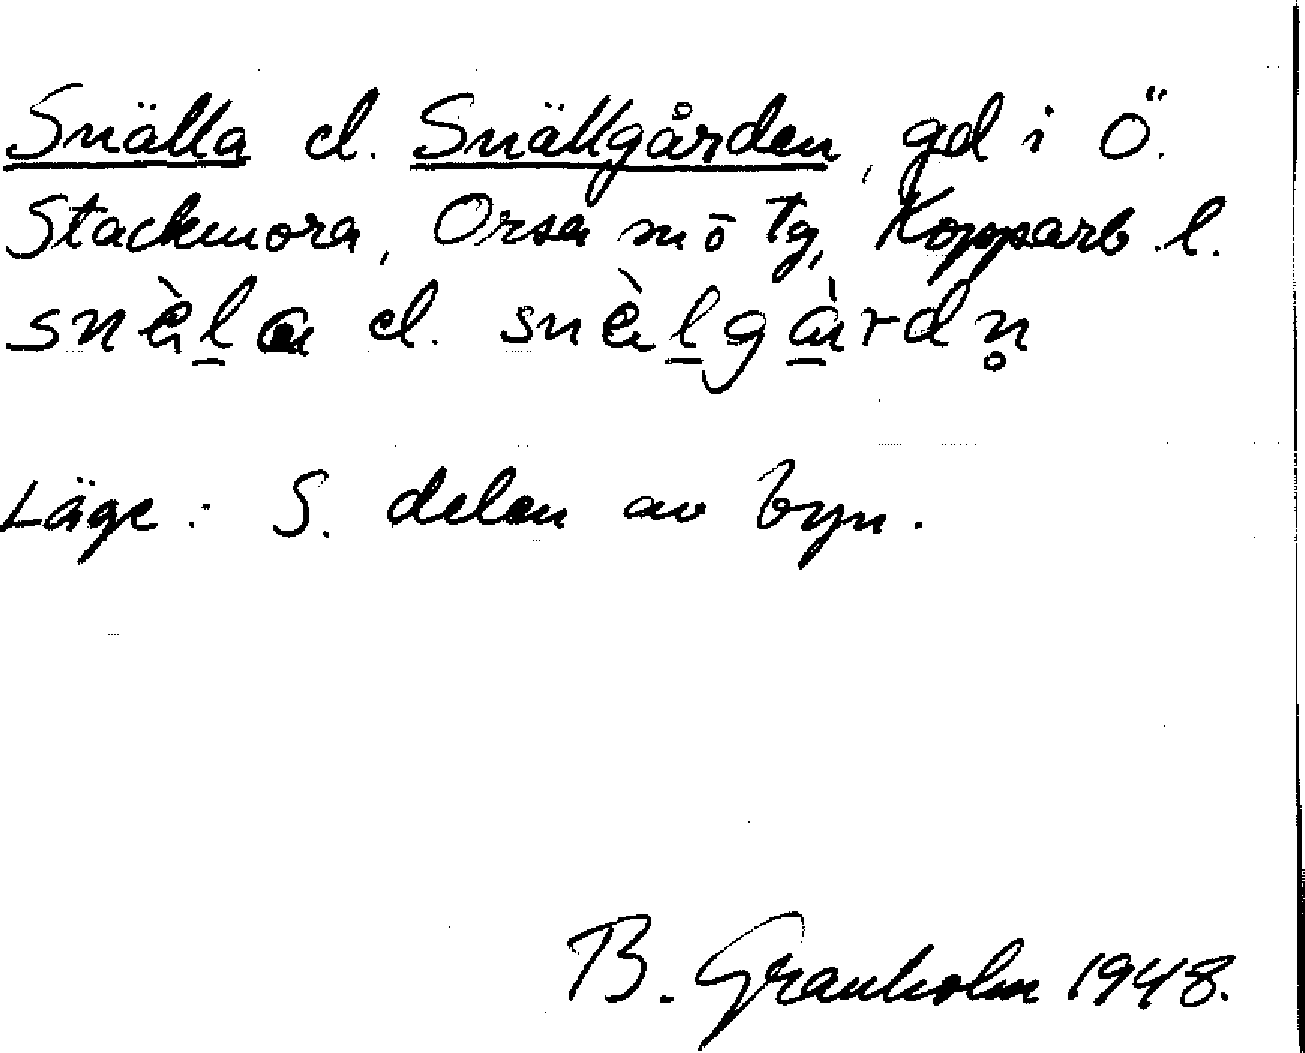 Snälla el. Snällgården, gd i Ö.
Stackmora, Orsa sn ö tg, Kopparb. l.
snὲla el. snὲlgàrdn̥
Läge: S. delen av byn.
B. Granholm 1948.